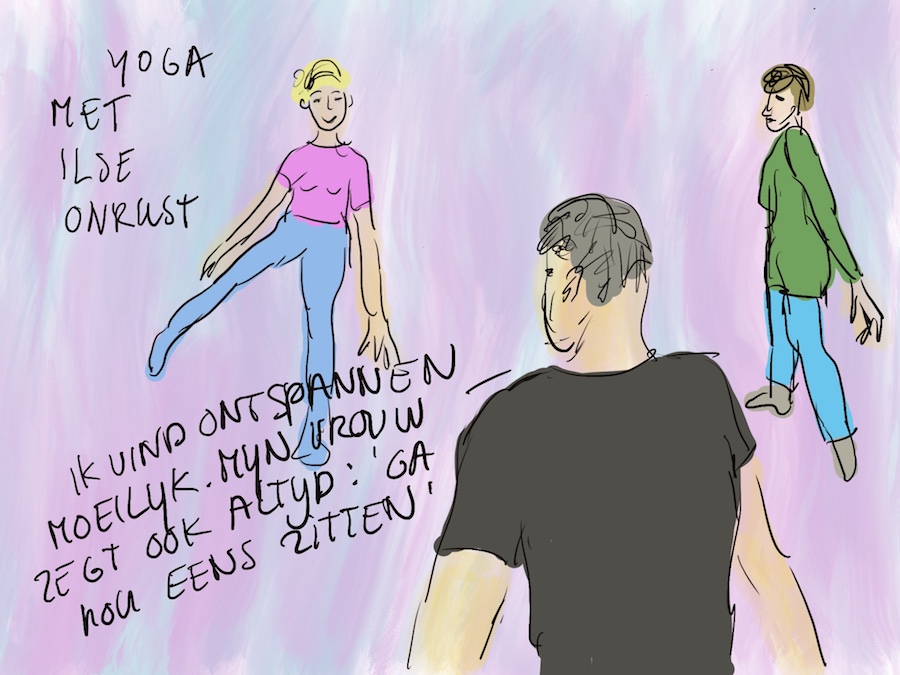 YOGA
MET
ILSE
ONRUST
IK VIND ONTSPANNEN
MOEILYK. MYN VROUW
ZEGT OOK ALTYD: 'GA
NOU EENS ZITTEN'